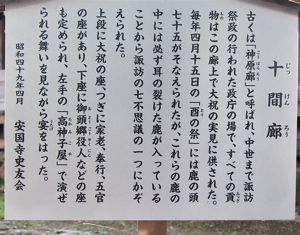 十間廊
じっけんろう
古くは「神原廊」と呼ばれ、中世まで諏訪
ごうばらろう
祭政の行われた政庁の場で、すべての貢
物はこの廊上で大祝の実見に供された。
毎年四月十五日の「酉の祭」には鹿の頭
七十五がそなえられたが、これらの鹿の
中には必ず耳の裂けた鹿が入っている
ことから諏訪の七不思議の一つにかぞ
えられた。
上段に大祝の座、つぎに家老、奉行、五官
の座があり、下座に御頭郷役人などの座
も定められ、左手の「高神子屋」で演ぜ
られる舞いを見ながら宴をはった。
昭和四十九年四月
安国寺史友会